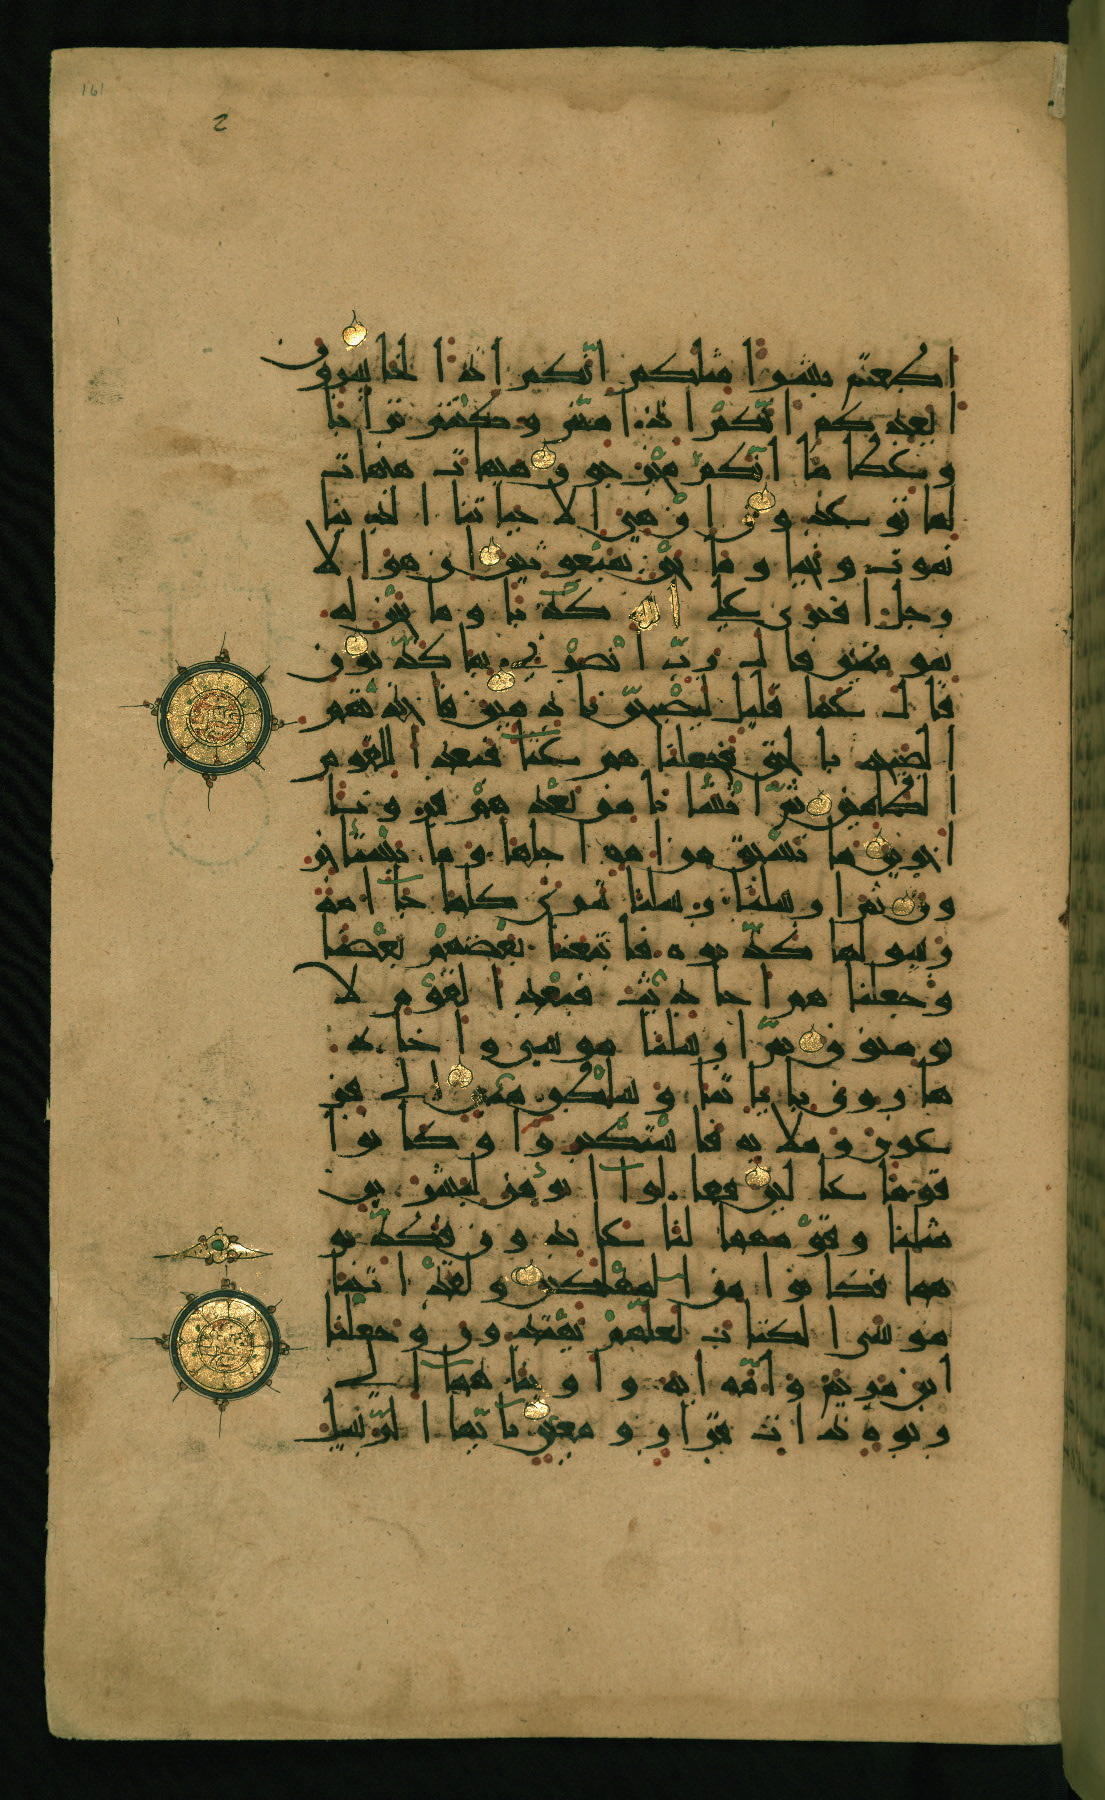 161
2
اطعتم بشرا مثلكم انّكم اذا لخاسرون
ايعدكم انّكم اذا متّم وكنتم ترابا
وعظاما انّكم مخرجون هيهات هيهات
لما توعدون ان هي الا حياتنا الدنيا
نموت ونحيا وما نحن بمبعوثين ان هو الا
رجل افترى على الله كذبا وما نحن له
بمومنين قال ربّ انصرني بما كذّبون
قال عمّا قليل ليصبحنّ نادمين فاخذتهم
الصيحة بالحق فجعلناهم غثا فبعدا للقوم
الظالمين ثمّ انشانا من بعدهم قرونا
اخرين ما تسبق من امة اجلها وما يستاخر
ون ثم ارسلنا رسلنا تترى كلما جا امة
رسولها كذّبوه فاتبعنا بعضهم بعضا
وجعلناهم احاديث فبعدا لقوم لا
يومنون ثمّ ارسلنا موسى واخاه
هارون باياتنا وسلطان مبين الى فر
عون وملايه فاستكبروا وكانوا
قوما عالين فقالوا انومن لبشرين
مثلنا وقومهما لنا عابدون فكذّبو
هما فكانوا من المهلكين ولقد اتينا
موسى الكتاب لعلّهم يهتدون وجعلنا
ابن مريم وامّه اية واويناهما الى
ربوة ذات قرار ومعين يا ايّها الرّسل